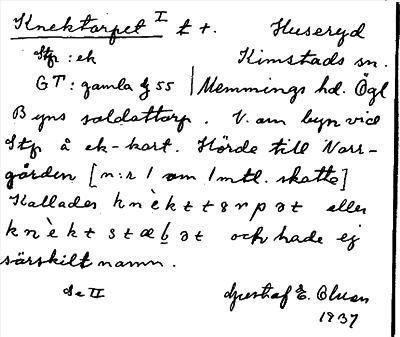 Knektorpet I t +. Huseryd
Stp : ek Kimstads sn.
GT : gamla § 55 | Memmings hd. Ögl
Byns soldattorp. V. om byn vid
Stp å ek-kart. Hörde till Norr-
gården [n:r 1 om 1 mtl. skatte]
Kallades knèkttɘrpət eller
knèktstæbət och hade ej
särskilt namn.
Se II Gustaf E. Olsson
1937